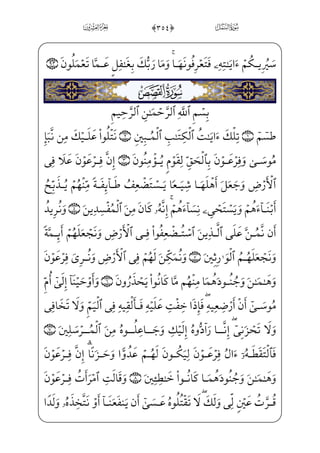 سُورَةُ النَّمۡلِ ﴿٣٥٤﴾ الجُزۡءُ العِشۡرُونَ
سَيُرِيكُمۡ ءَايَٰتِهِۦ فَتَعۡرِفُونَهَاۚ وَمَا رَبُّكَ بِغَٰفِلٍ عَمَّا تَعۡمَلُونَ ٩٣
سُورَةُ القَصَصِ
بِسۡمِ ٱللَّهِ ٱلرَّحۡمَٰنِ ٱلرَّحِيمِ
طسٓمٓ ١ تِلۡكَ ءَايَٰتُ ٱلۡكِتَٰبِ ٱلۡمُبِينِ ٢ نَتۡلُواْ عَلَيۡكَ مِن نَّبَإِ
مُوسَىٰ وَفِرۡعَوۡنَ بِٱلۡحَقِّ لِقَوۡمٖ يُؤۡمِنُونَ ٣ إِنَّ فِرۡعَوۡنَ عَلَا فِي
ٱلۡأَرۡضِ وَجَعَلَ أَهۡلَهَا شِيَعٗا يَسۡتَضۡعِفُ طَآئِفَةٗ مِّنۡهُمۡ يُذَبِّحُ
أَبۡنَآءَهُمۡ وَيَسۡتَحۡيِۦ نِسَآءَهُمۡۚ إِنَّهُۥ كَانَ مِنَ ٱلۡمُفۡسِدِينَ ٤ وَنُرِيدُ
أَن نَّمُنَّ عَلَى ٱلَّذِينَ ٱسۡتُضۡعِفُواْ فِي ٱلۡأَرۡضِ وَنَجۡعَلَهُمۡ أَئِمَّةٗ
وَنَجۡعَلَهُمُ ٱلۡوَٰرِثِينَ ٥ وَنُمَكِّنَ لَهُمۡ فِي ٱلۡأَرۡضِ وَنُرِيَ فِرۡعَوۡنَ
وَهَٰمَٰنَ وَجُنُودَهُمَا مِنۡهُم مَّا كَانُواْ يَحۡذَرُونَ ٦ وَأَوۡحَيۡنَآ إِلَىٰٓ أُمِّ
مُوسَىٰٓ أَنۡ أَرۡضِعِيهِۖ فَإِذَا خِفۡتِ عَلَيۡهِ فَأَلۡقِيهِ فِي ٱلۡيَمِّ وَلَا تَخَافِي
وَلَا تَحۡزَنِيٓۖ إِنَّا رَآدُّوهُ إِلَيۡكِ وَجَاعِلُوهُ مِنَ ٱلۡمُرۡسَلِينَ ٧
فَٱلۡتَقَطَهُۥٓ ءَالُ فِرۡعَوۡنَ لِيَكُونَ لَهُمۡ عَدُوّٗا وَحَزَنًاۗ إِنَّ فِرۡعَوۡنَ
وَهَٰمَٰنَ وَجُنُودَهُمَا كَانُواْ خَٰطِـِٔينَ ٨ وَقَالَتِ ٱمۡرَأَتُ فِرۡعَوۡنَ
قُرَّتُ عَيۡنٖ لِّي وَلَكَۖ لَا تَقۡتُلُوهُ عَسَىٰٓ أَن يَنفَعَنَآ أَوۡ نَتَّخِذَهُۥ وَلَدٗا